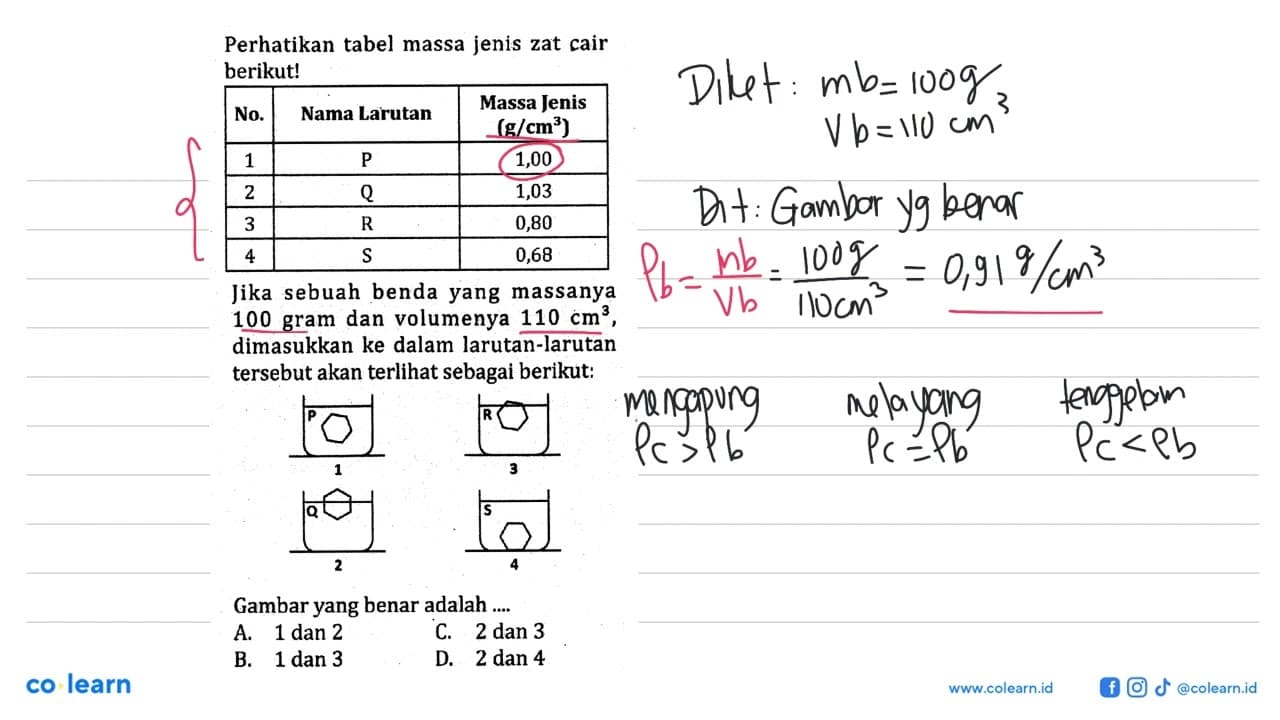 Perhatikan tabel massa jenis zat cair
berikut!
No. Nama Larutan Massa Jenis (g/cm³)
1 P 1,00
2 Q 1,03
3 R 0,80
4 S 0,68
Jika sebuah benda yang massanya
100 gram dan volumenya 110 cm³,
dimasukkan ke dalam larutan-larutan
tersebut akan terlihat sebagai berikut:
P R
1 3
Q S
2 4
Gambar yang benar adalah ....
A. 1 dan 2 C. 2 dan 3
B. 1 dan 3 D. 2 dan 4
Diket : mb = 100g
Vb = 110 cm³
Dit : Gambar yg benar
ρb = mb/Vb = 100g/110cm³ = 0,91 g/cm³
mengapung melayang tenggelam
ρc > ρb ρc = ρb ρc < ρb
co learn
www.colearn.id @colearn.id